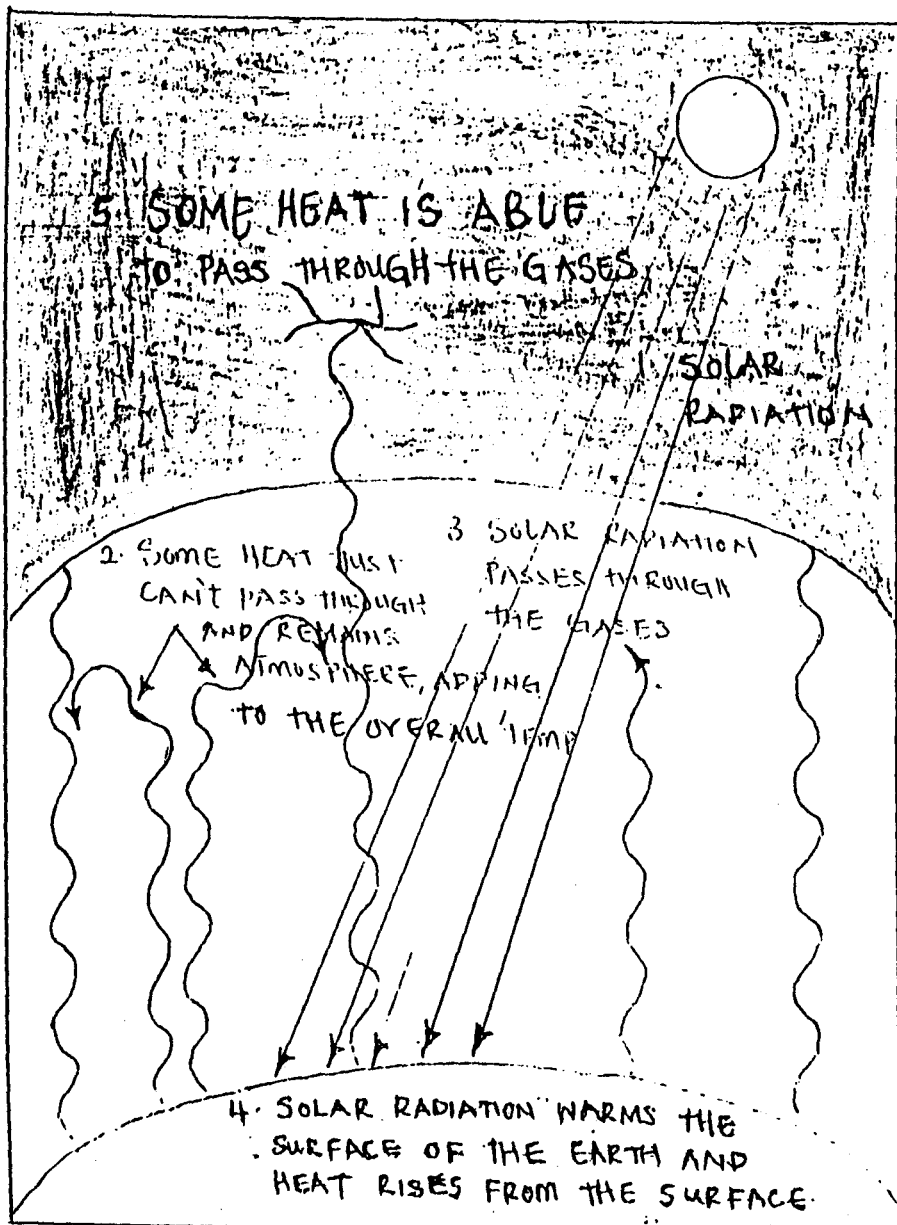 5. SOME HEAT IS ABLE
TO PASS THROUGH THE GASES
1. SOLAR
RADIATION
2. SOME HEAT JUST
CAN'T PASS THROUGH
AND REMAINS
ATMOSPHERE, ADDING
TO THE OVERALL TEMP
3 SOLAR RADIATION
PASSES THROUGH
THE GASES
4. SOLAR RADIATION WARMS THE
SURFACE OF THE EARTH AND
HEAT RISES FROM THE SURFACE.